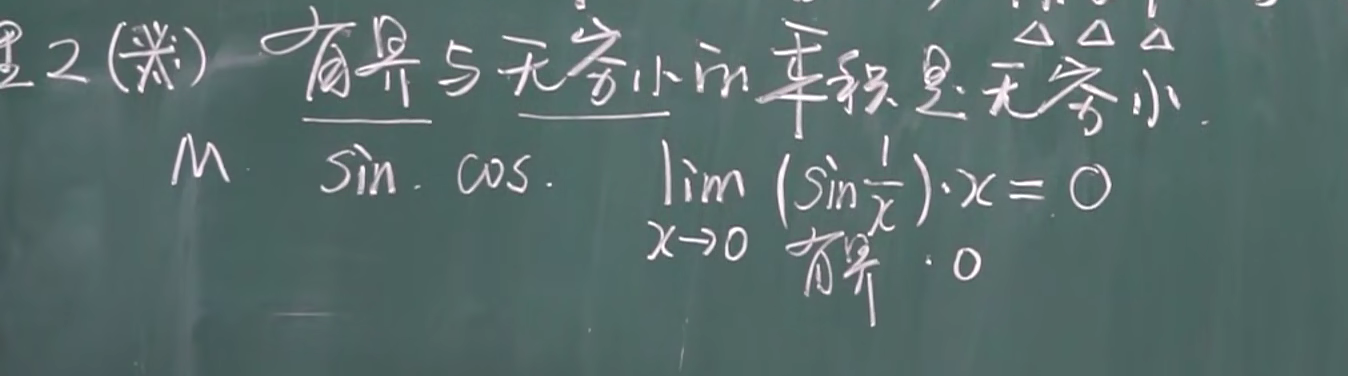 理2(※) 有界与无穷小的乘积是无穷小.
△ △ △
M. sin. cos. lim (sin 1/x)·x = 0
x→0 有界·0